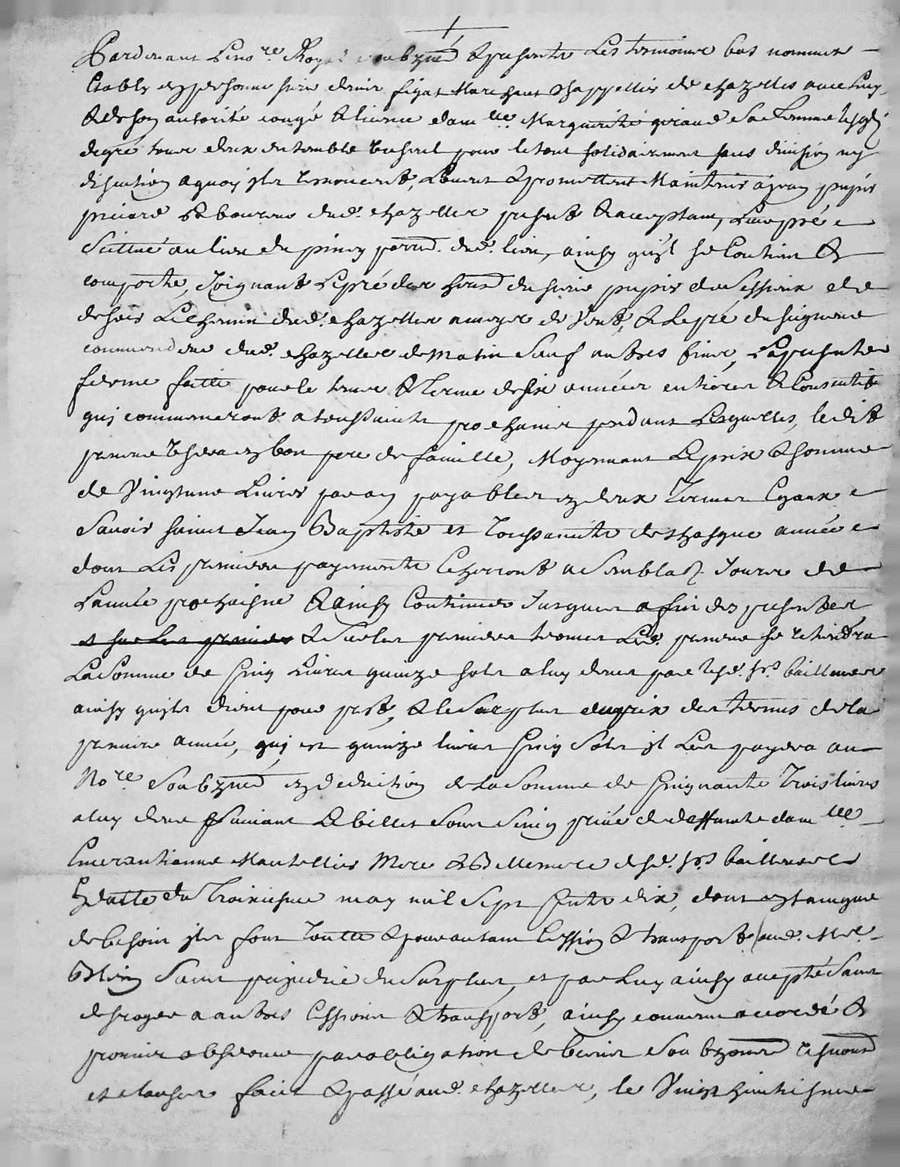 Pardevant le no.re Royal soubzné & presents les temoins bas nommés
Etably en personne sieur denis figat Marchant Chappellier de chazelles avec luy
& de son autorité congé & licence dam.lle Margueritte giraud Sa femme lesq.ls
degré tous deux ensemble & seul pour le tout solidairement sans division ny
discution a quoy ils renoncent, louent & promettent Maintenir a jean pupier
present & acceptant, Un pré
Scittué au lieu de piney parr. dud. lieu, ainsy quil se Contient &
comporte, Joignant le pré des hoirs du sieur pupier de
de soir le chemin dud. chazelles a de Vent, & le pré du seigneur
commandeur dud. chazelles de Matin Sauf autres fins, la presente
ferme faitte pour le temps & terme de six années entieres & Consecutives
qui commenceront a toussaints prochaines pendant Lesquelles, led.
preneur en bon pere de famille, Moyennant Le prix & somme
de Vingtune Livres par an payables en deux Termes Egaux
Savoir saint Jean Baptiste et Toussaints de chasque année
dont Les premiers payements a semblab. Jours de
L'année prochaine & ainsy Continuer Jusques a fin des presentes
& sur les premiers termes Led. preneur se retiendra
La Somme de Cinq Livres quinze sols a luy deus par lesd. srs bailleurs
ainsy quils disent pour prest, & le Surplus du prix des termes de la
premiere année, qui est quinze livres Cinq Sols il Les payera au
No.re Soubzné en deduction de La Somme de Cinquante Trois livres
a luy deue Suivant Le billet Sous Seing privé de deffunte dam.lle
Mere & Bellemere desd. srs bailleurs
En datte du Troisiesme may mil Sept Cents dix, dont en tant que
de besoin ils font Toutte & pour autant Cession & transport aud. M.e
Sans prejudice du Surplus, et par Luy ainsy accepté Sans
desroger a autres Cessions & transports, ainsy convenu accordé &
promis observer par obligation de biens Soubzmis. renon.
et clauses fait & passé aud. chazelles, le Vingt huitiesme